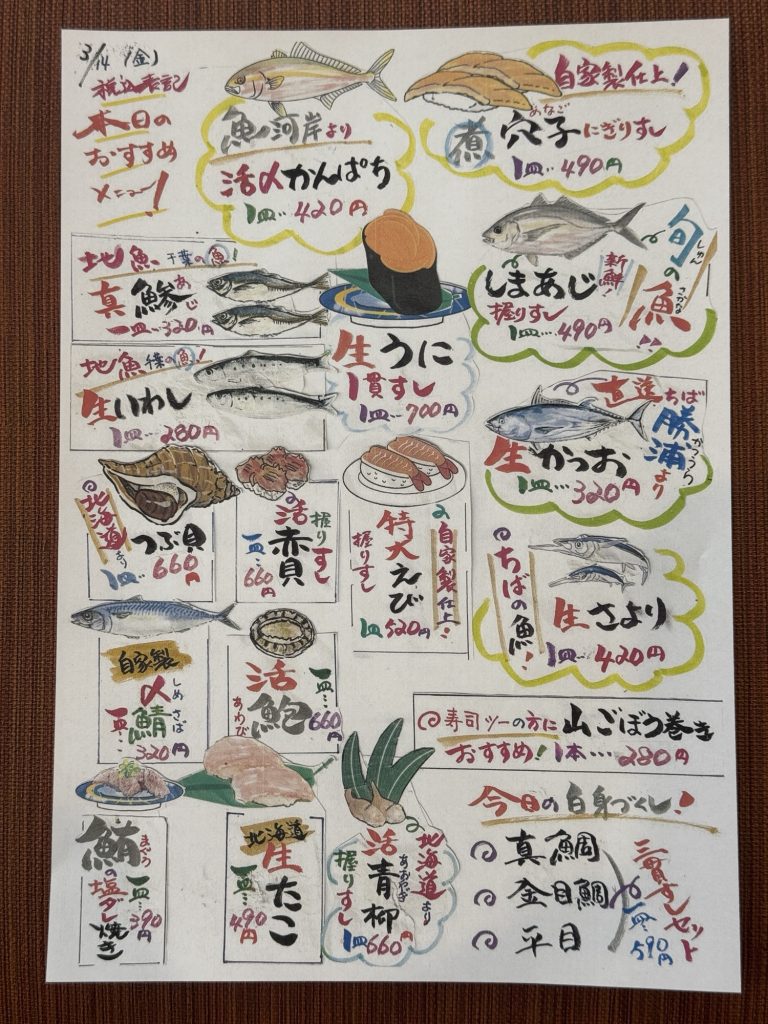 3/14(金)
税込表記
本日の
おすすめ
メニュー!
魚河岸より
活〆かんぱち
1皿…420円
自家製仕上!
煮 穴子にぎりすし
あなご
1皿…490円
地魚 千葉の魚!
真鯵
あじ
一皿…320円
生うに
1貫すし
1皿…700円
旬の魚
しゅん
さかな
新鮮!
しまあじ
握りすし
1皿…490円
地魚 千葉の魚!
生いわし
1皿…280円
ちば
勝浦より
かつうら
生かつお
1皿…320円
北海道より
つぶ貝
1皿…660円
活赤貝
握りすし
一皿…660円
自家製仕上!
特大えび
握りすし
1皿520円
ちばの魚!
生さより
1皿…420円
自家製
〆鯖
しめさば
一皿…320円
活鮑
あわび
一皿…660円
寿司ツーの方に
おすすめ!
山ごぼう巻き
1本…280円
鮪の塩ダレ焼き
まぐろ
一皿…390円
北海道
生たこ
一皿…490円
北海道より
活青柳
あおやぎ
握りすし
1皿660円
今日の白身づくし!
真鯛
金目鯛
平目
三貫すしセット
一皿…590円